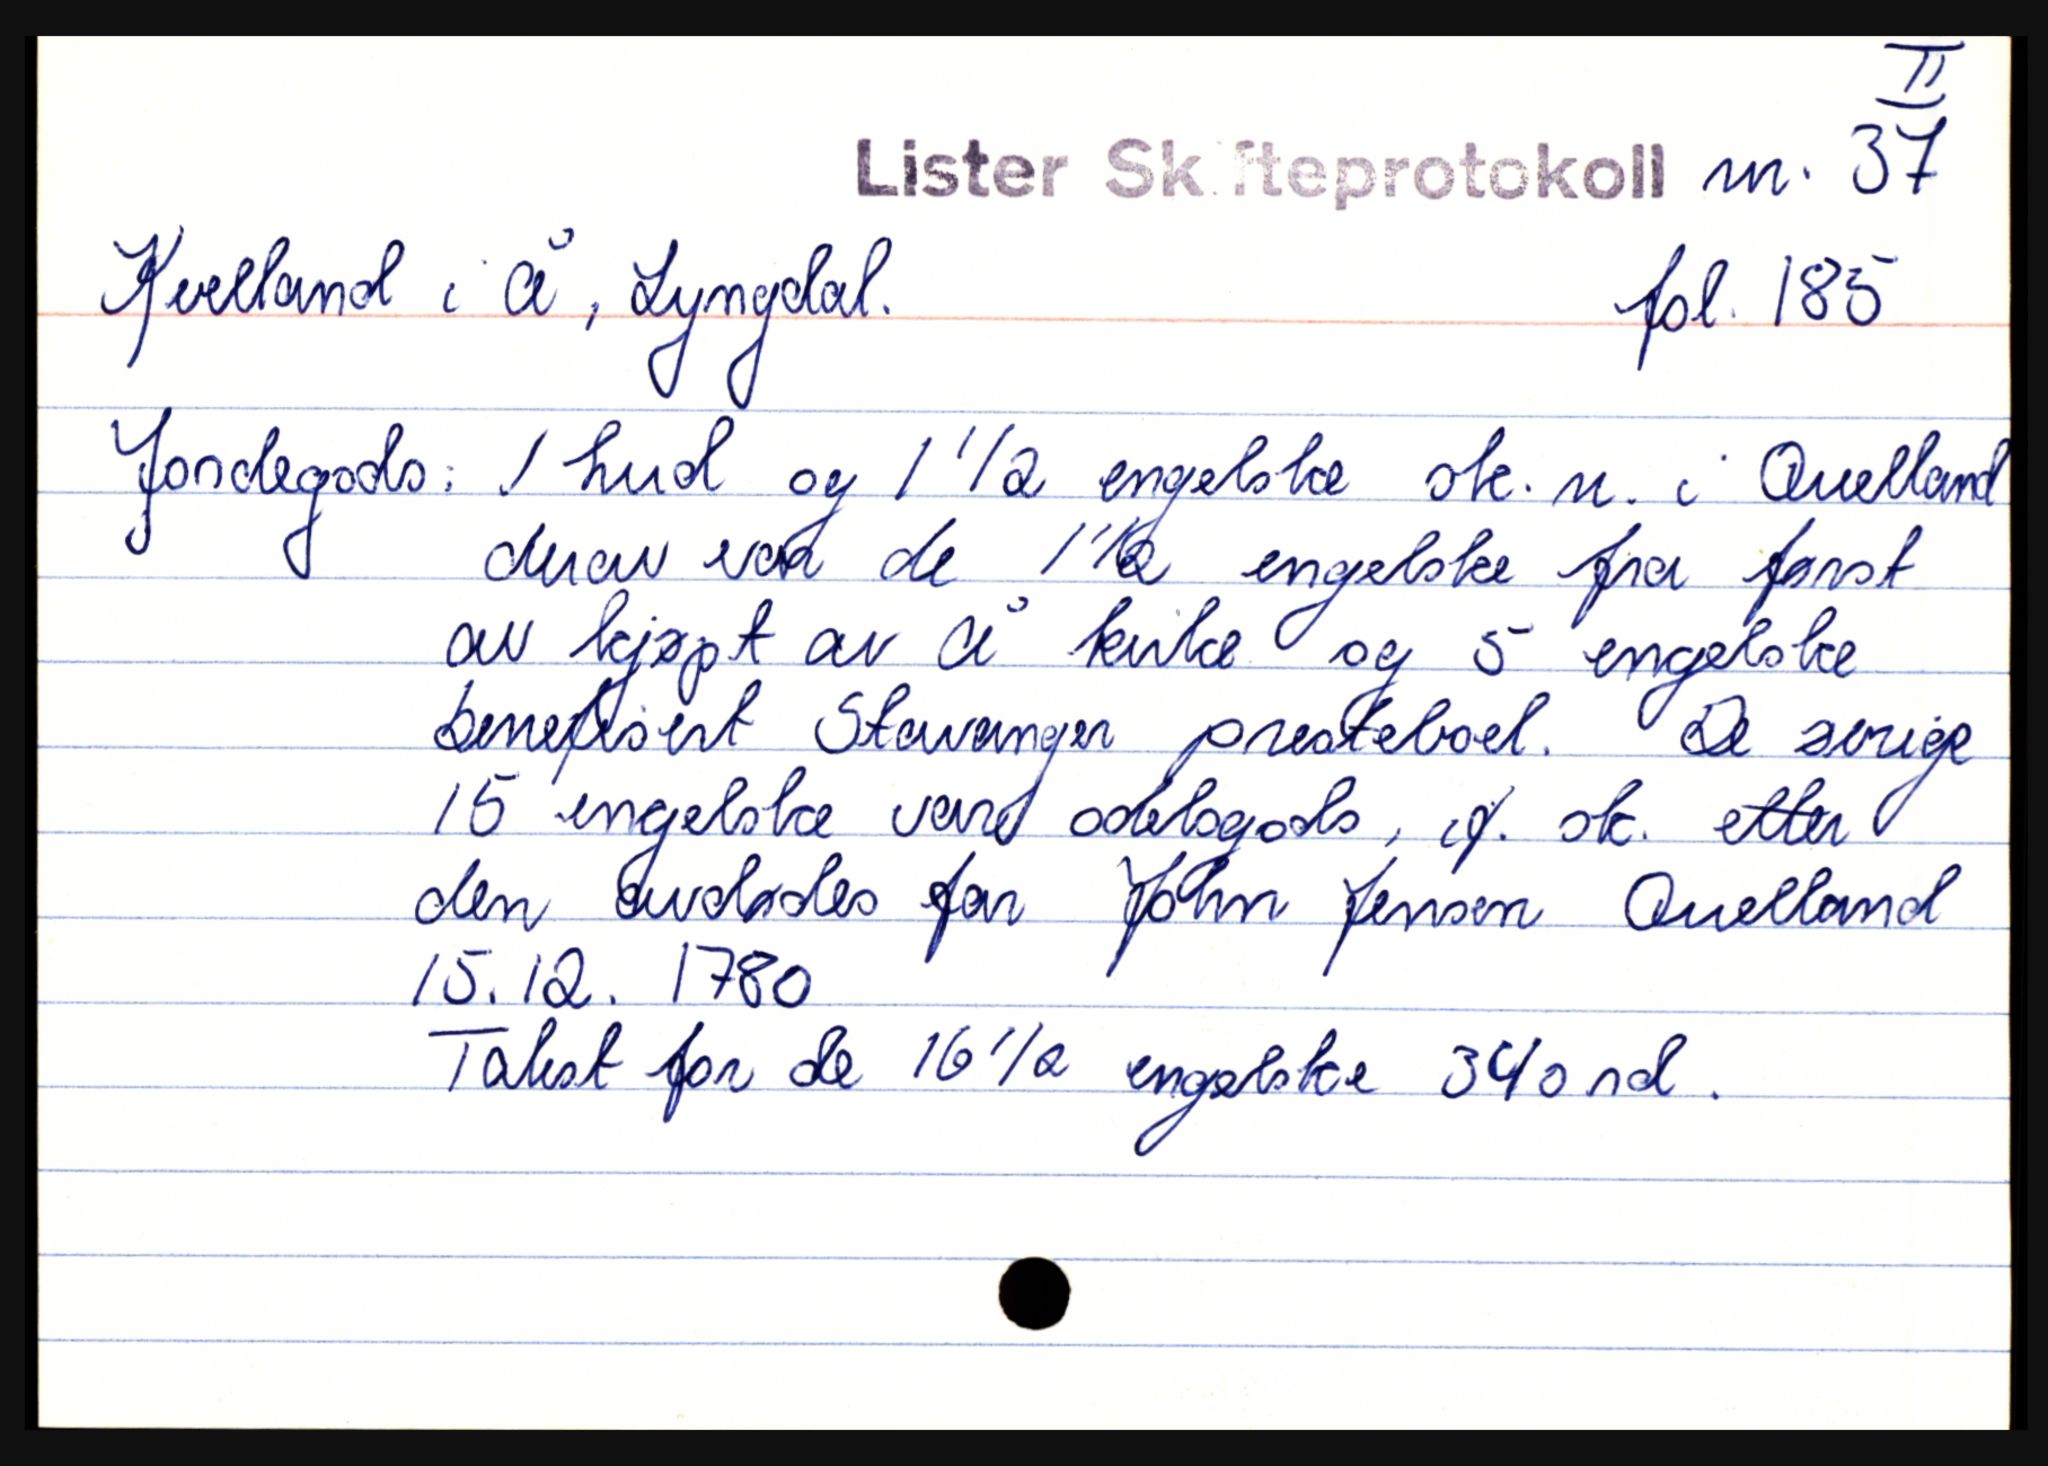 II
Lister Skifteprotokoll nr. 37
Kvelland i Å, Lyngdal. fol. 185
Jordegods: 1 hud og 1 1/2 engelske sk. n. i Quelland
derav var de 1 1/2 engelske fra først
av kjøpt av Å kirke og 5 engelske
benefisert Stavanger presteboel. De øvrige
15 engelske var odelsgods, if. sk. etter
den avdødes far John Jensen Quelland
15.12. 1780
Takst for de 16 1/2 engelske 340 rd.